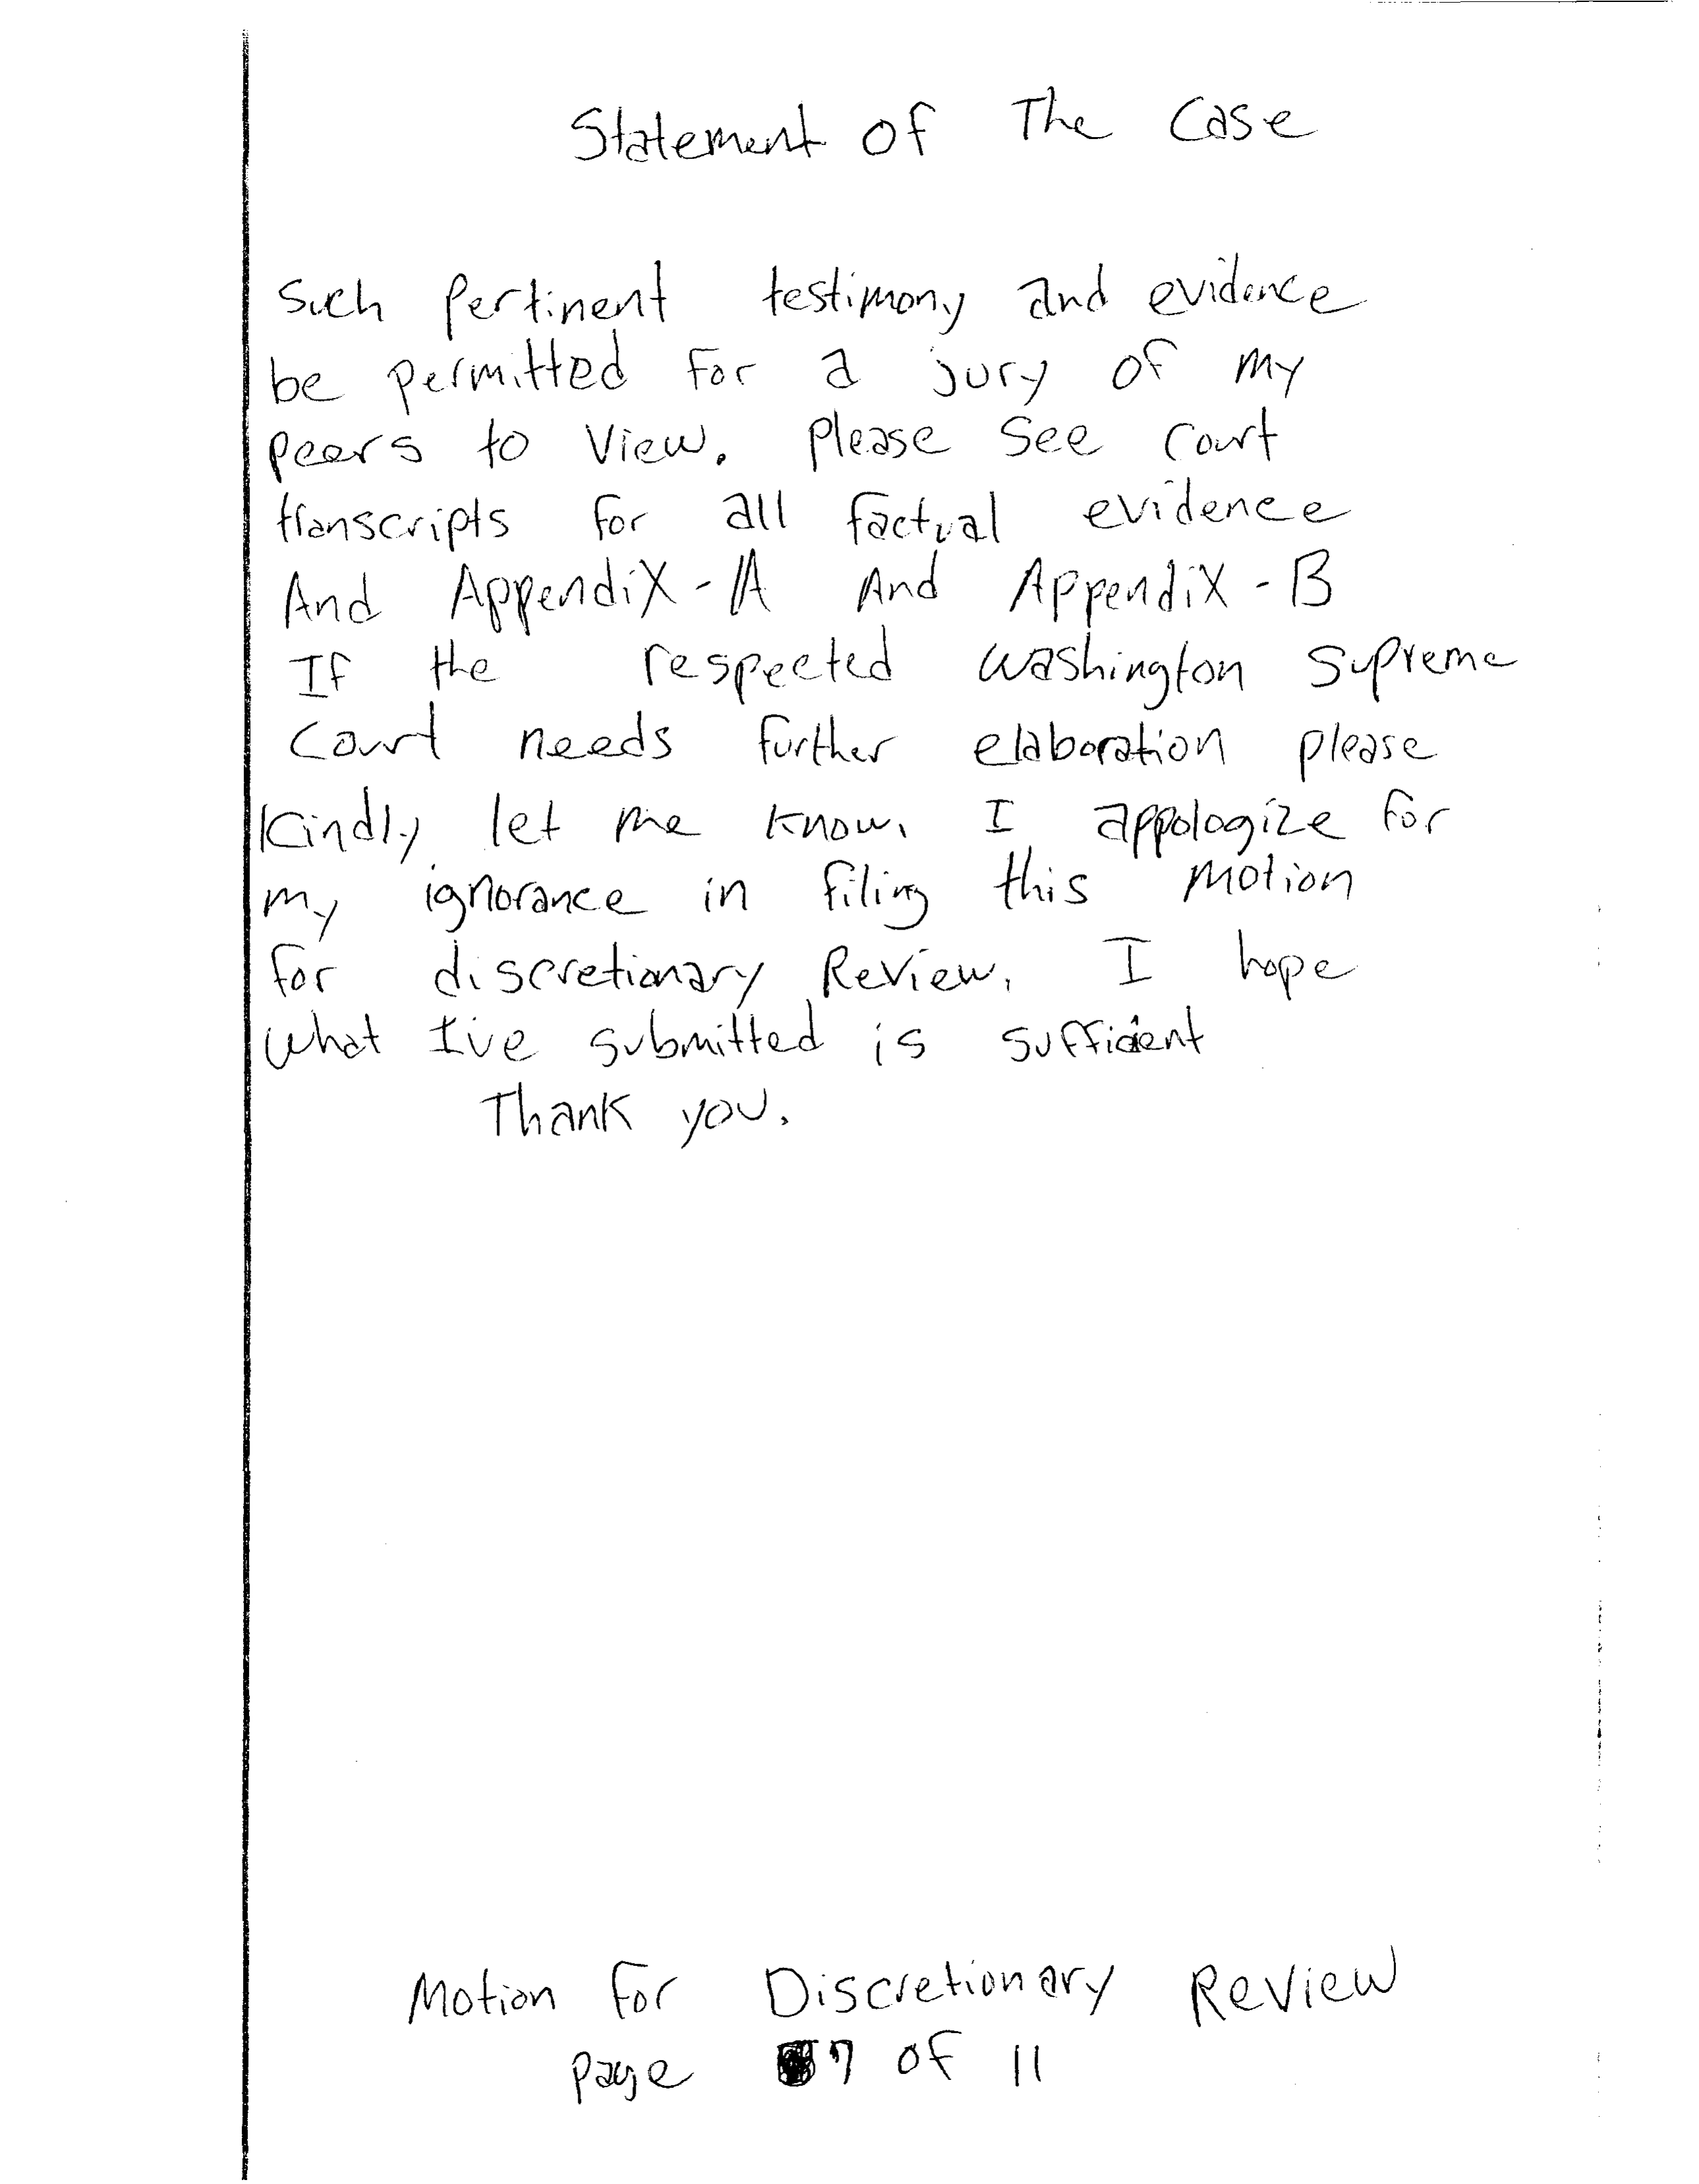 Statement of The Case
Such pertinent testimony and evidence
be permitted for a jury of my
peers to view. Please see court
transcripts for all factual evidence
And Appendix-A And Appendix-B
If the respected Washington Supreme
Court needs further elaboration please
Kindly let me know. I appologize for
my ignorance in filing this motion
for discretionary Review. I hope
what I've submitted is sufficient
Thank you.
Motion for Discretionary Review
page 7 of 11